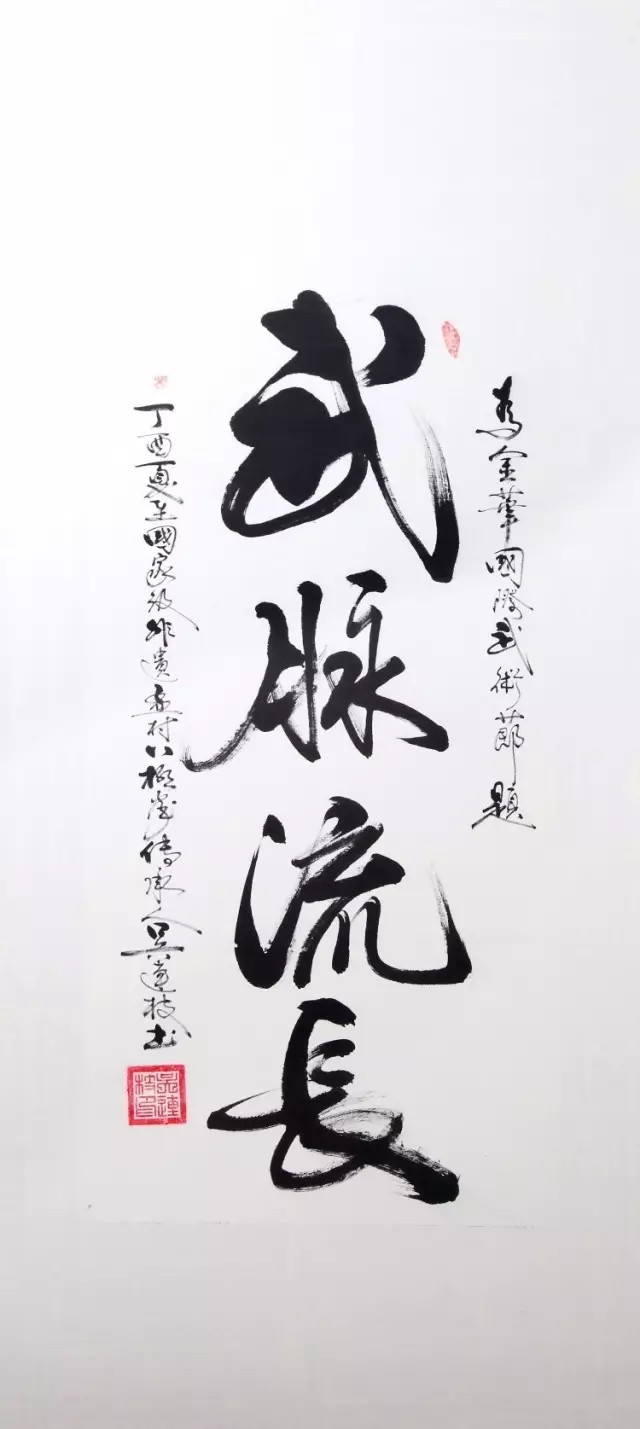 為金華國際武術節題
武脉流長
丁酉夏至國家級非遺孟村八極拳傳承人吳連枝書
吳連枝印